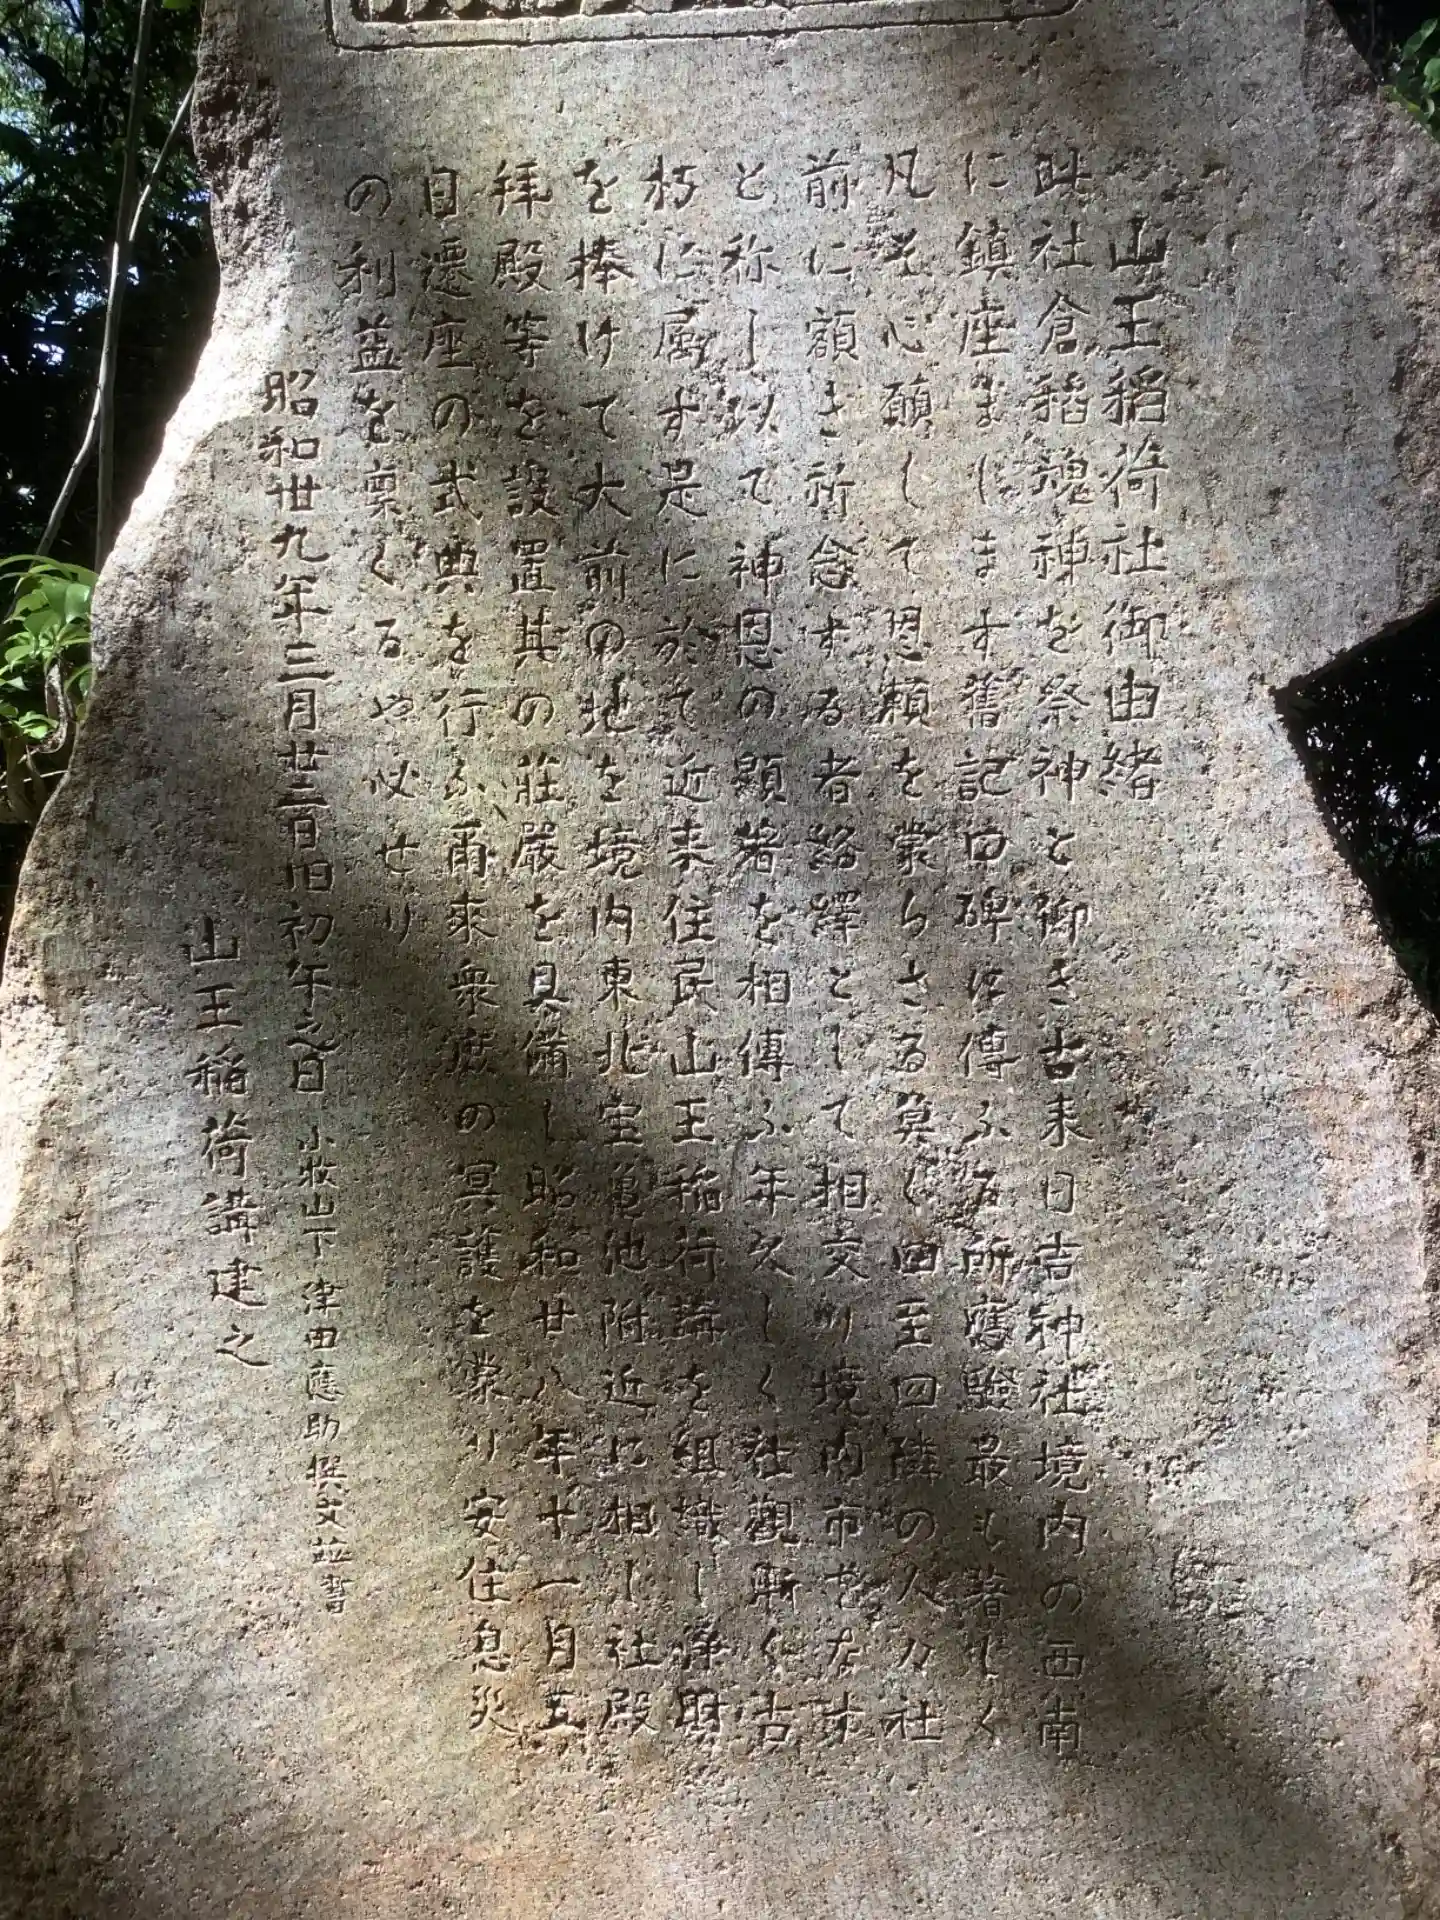 山王稻荷社御由緒
此社倉稻魂神を祭神と御き古来日吉神社境内の西南
に鎮座まします舊記口碑に傳ふる所應驗最も著しく
凡そ心願して恩頼を蒙らさる莫く四至四隣の人々社
前に額き祈念する者絡繹として相交り境内市をなす
と称し以て神恩の顯著を相傳ふ年久しく社觀漸く古
朽に属す是に於て近来住民山王稲荷講を組織し浄財
を捧けて大前の地を境内東北宝亀池附近に相し社殿
拝殿等を設置其の莊厳を具備し昭和廿八年十一月五
日遷座の式典を行ふ爾來衆庶の冥護を蒙り安住息災
の利益を稟くるや必せり
昭和廿九年三月廿三日旧初午之日 小牧山下 津田應助撰文並書
山王稲荷講建之